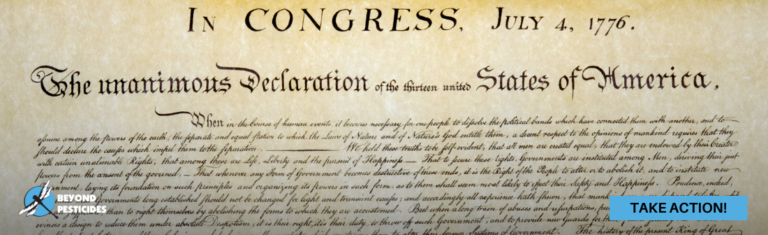 IN CONGRESS, JULY 4, 1776.
The unanimous Declaration of the thirteen united States of America,
When in the Course of human events, it becomes necessary for one people to dissolve the political bands which have connected them with another, and to
assume among the powers of the earth, the separate and equal station to which the Laws of Nature and of Nature's God entitle them, a decent respect to the opinions of mankind requires that they
should declare the causes which impel them to the separation. We hold these truths to be self-evident, that all men are created equal, that they are endowed by their Creator
with certain unalienable Rights, that among these are Life, Liberty and the pursuit of Happiness — That to secure these rights, Governments are instituted among Men, deriving their just
powers from the consent of the governed, — That whenever any Form of Government becomes destructive of these ends, it is the Right of the People to alter or to abolish it, and to institute new
laying its foundation on such principles and organizing its powers in such form, as to them shall seem most likely to effect their Safety and Happiness. Prudence, indeed,
Governments long established should not be changed for light and transient causes; and accordingly all experience hath shewn, that
than to right themselves by abolishing the forms to which they are accustomed. But when a long train of abuses and usurpations,
design to reduce them under absolute Despotism, it is their right, it is their duty, to throw off such Government, and to provide new Guards for
The History of the present King of Great
BEYOND
PESTICIDES
TAKE ACTION!